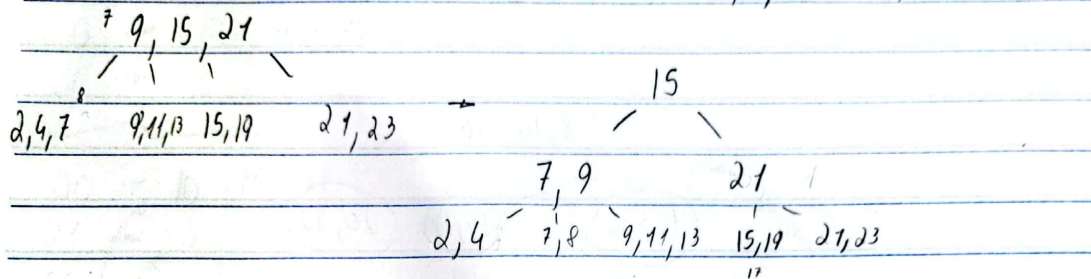 7 9, 15, 21
8
2,4,7 9,11,13 15,19 21,23
→ 15
7, 9 21
2,4 7,8 9,11,13 15,19 21,23
17